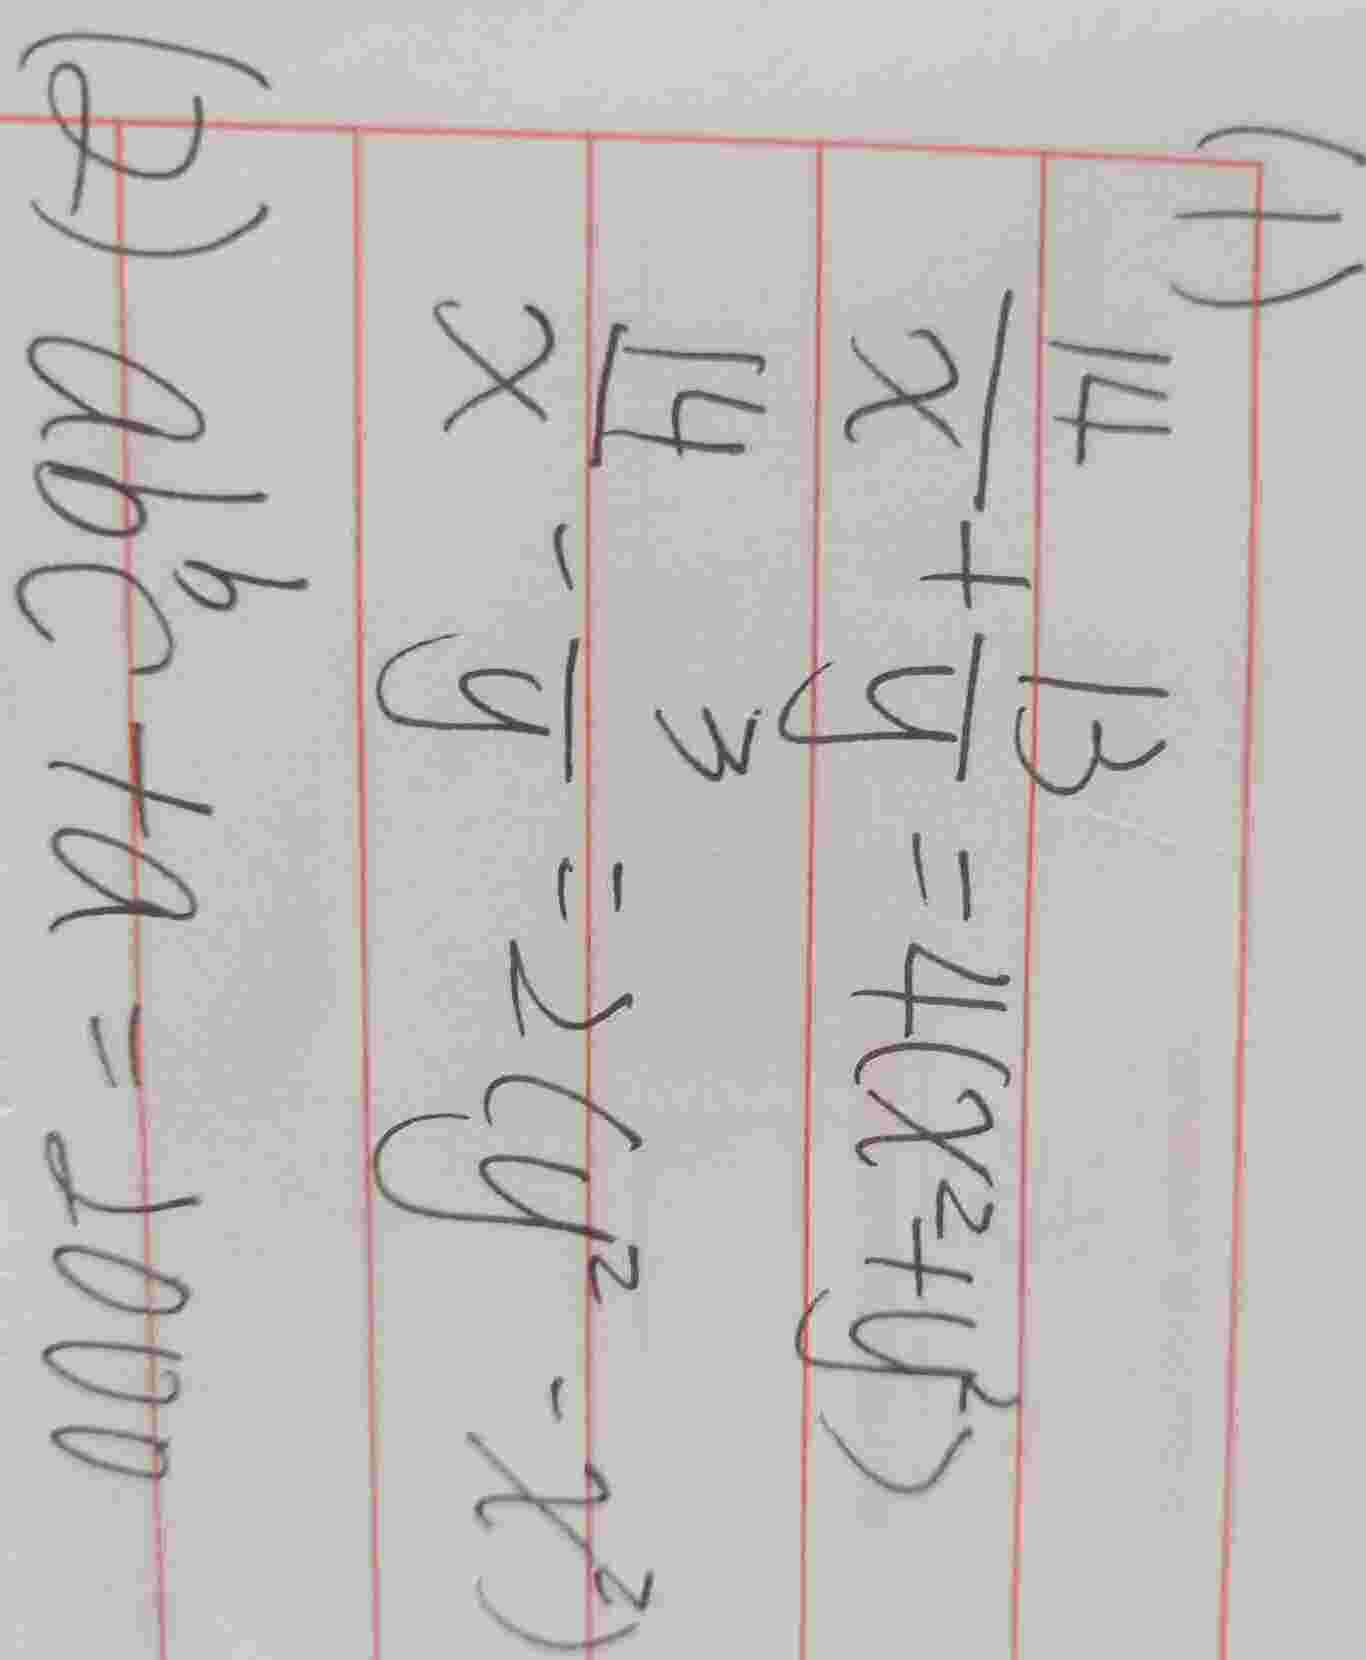 (1) 14/x + 13/y = 4(x² + y²)
14/x - 3/y = 2(y² - x²)
(2) abc^b + a = 2000